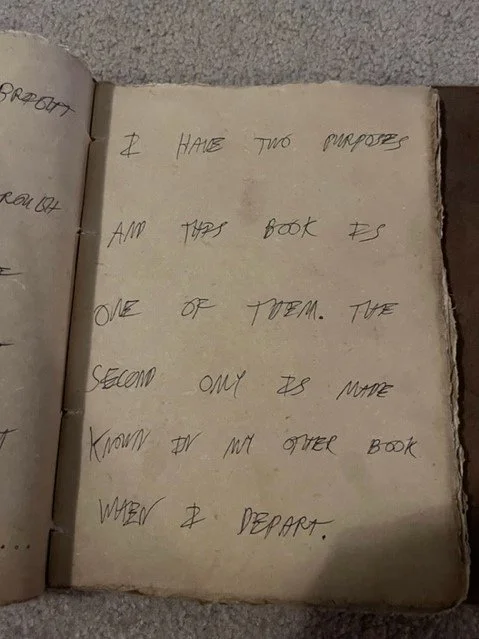 BROUGHT
ROUGH
I HAVE TWO PURPOSES
AND THIS BOOK IS
ONE OF THEM. THE
SECOND ONLY IS MADE
KNOWN IN MY OTHER BOOK
WHEN I DEPART.